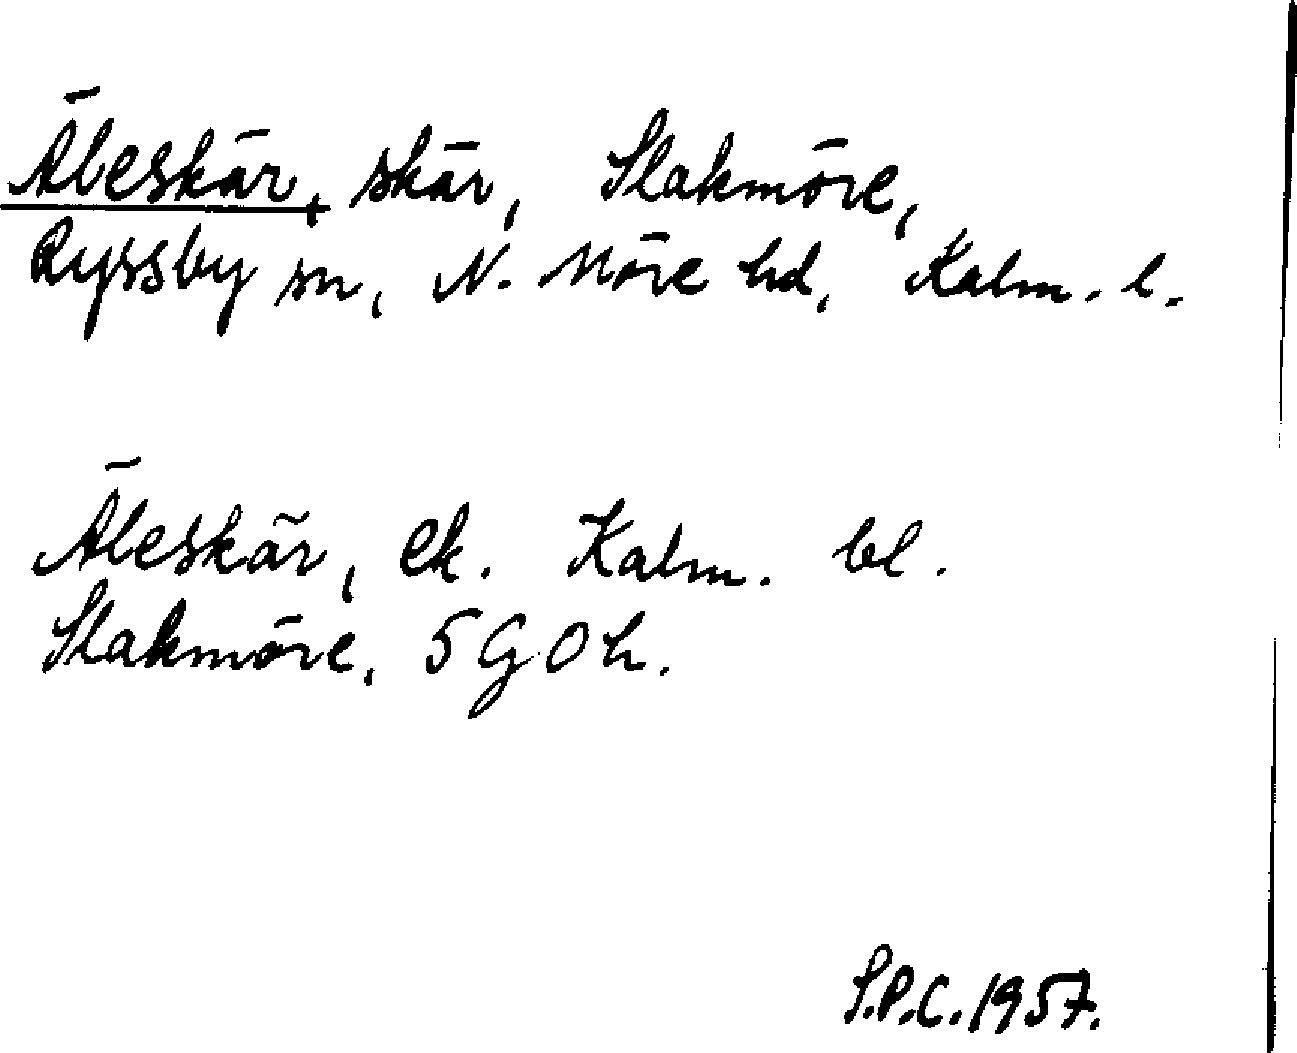 Äleskär, skär, Slakmöre,
Ryssby sn, N. Möre hd, Kalm. l.
Äleskär, ek. Kalm. bl.
Slakmöre, 5 G Ö h.
S.P.C. 1957.